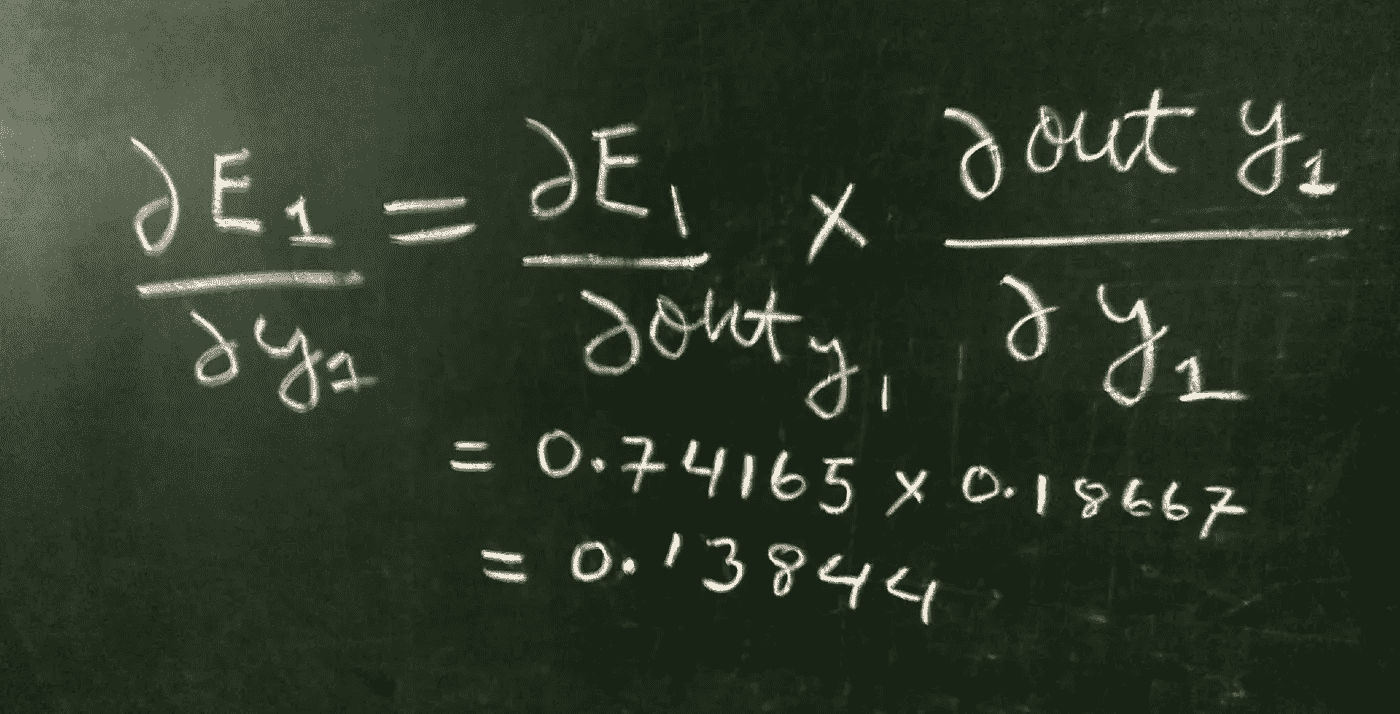 ∂E₁/∂y₁ = ∂E₁/∂out y₁ × ∂out y₁/∂y₁
= 0.74165 × 0.18667
= 0.13844